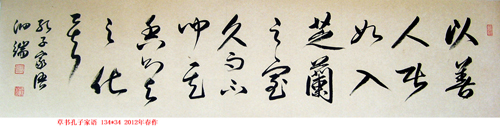 以善
人居
如入
芝蘭
之室
久而不
闻其
香与
之化
矣
孔子家语
草书孔子家语 134*34 2012年春作